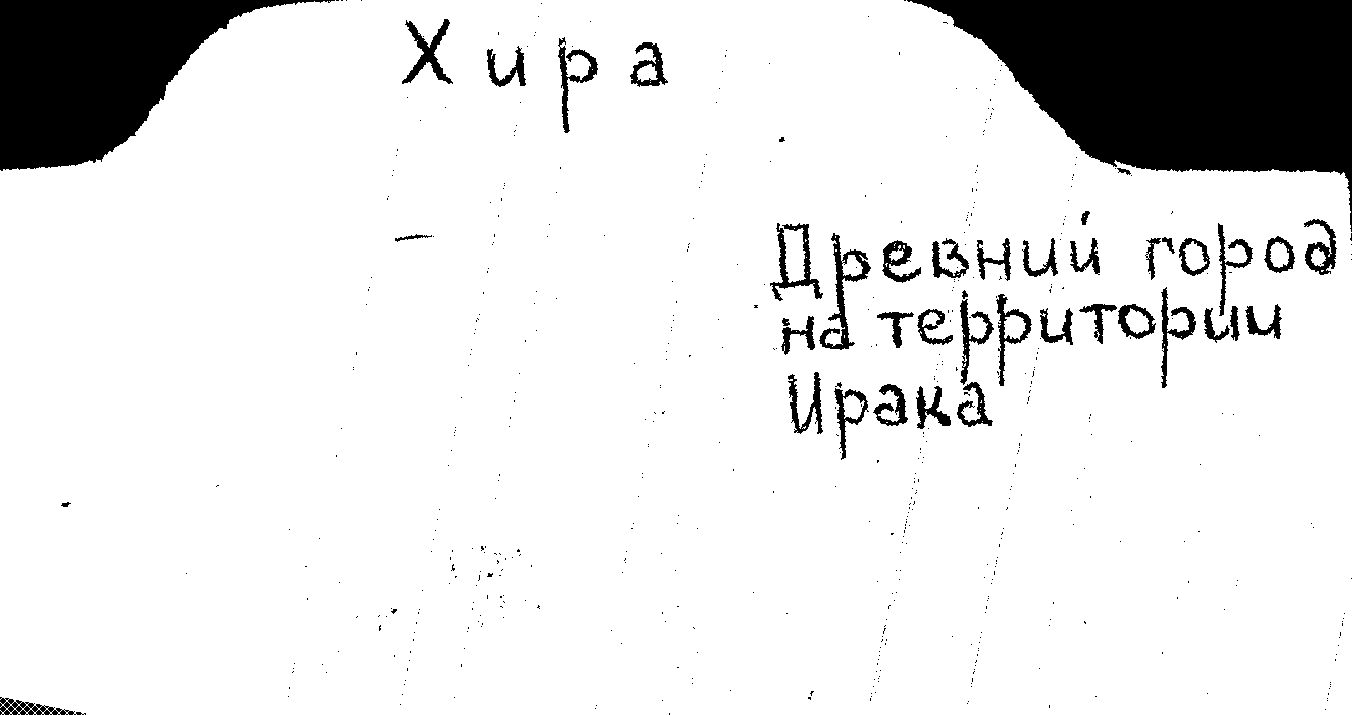 Хира
Древний город
на территории
Ирака